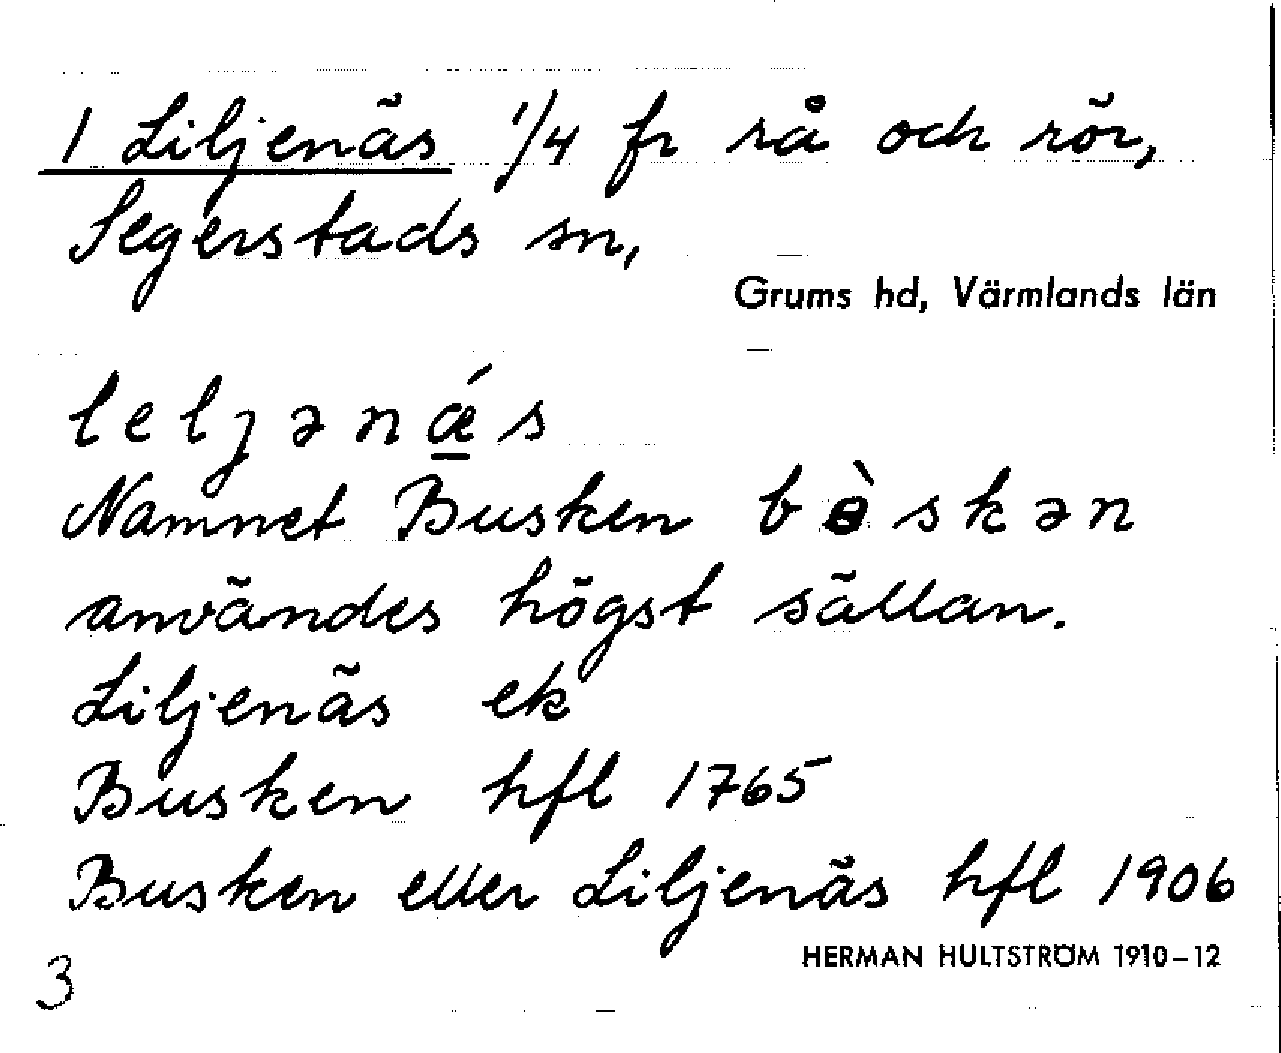 1 Liljenäs 1/4 fr rå och rör,
Segerstads sn,
Grums hd, Värmlands län
leljənǽs
Namnet Busken bɵ̀skən
användes högst sällan.
Liljenäs ek
Busken hfl 1765
Busken eller Liljenäs hfl 1906
HERMAN HULTSTRÖM 1910–12
3